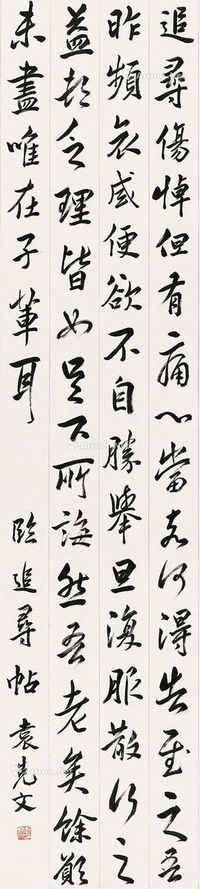 追尋傷悼但有痛心當奈何得告慰之吾
昨頻哀感便欲不自勝舉旦復服散行之
益頓乏理皆如足下所誨然吾老矣餘願
未盡唯在子輩耳
臨追尋帖 袁克文